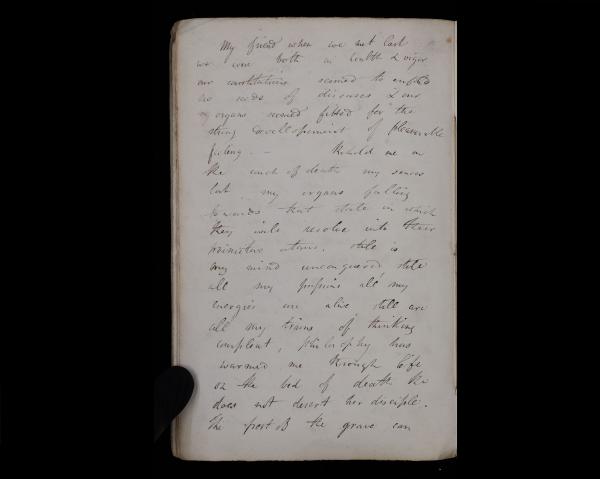 My friend when we met last
we were both in health & vigor
our constitutions seemed to
no seeds of diseases & our
organs seemed fitted for the
strong developement of pleasurable
feeling. — Behold me on
the couch of death my senses
lost my organs falling
towards that state in which
they will resolve into their
primitive atoms. Still is
my mind unconquered, still
all my passions all my
energies are alive still are
all my trains of thinking
compleat, philosophy has
warmed me through life
on the bed of death she
does not desert her disciple.
The frost of the grave can